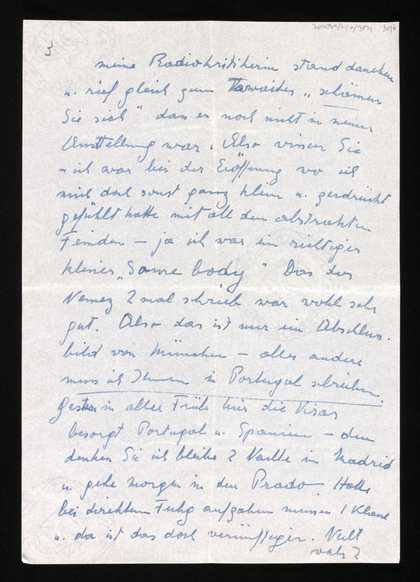 3
meine Radiokritikerin stand daneben
u. rief gleich zum "schämen
Sie sich" dass er noch nicht in meiner
Ausstellung war. Also wissen Sie
– ich war bei der Eröffnung wo ich
mich doch sonst ganz klein u. gedrückt
gefühlt hatte mit all den abstrakten
Feinden – ja ich war ein richtiger
kleiner "Some body" Das der
Nemez 2 mal schrieb war wohl sehr
gut. Also das ist nur ein Abschluss
bild von München – alles andere
muss ich Ihnen in Portugal schreiben.
Gestern in aller Früh hier die Visas
besorgt Portugal u. Spanien – denn
denken Sie ich bleibe 2 Nächte in Madrid
u gehe morgen in den Prado. Hätte
bei direktem Flug aufgeben müssen 1 Klasse
u. da ist das doch vernünftiger. Nicht
wahr?